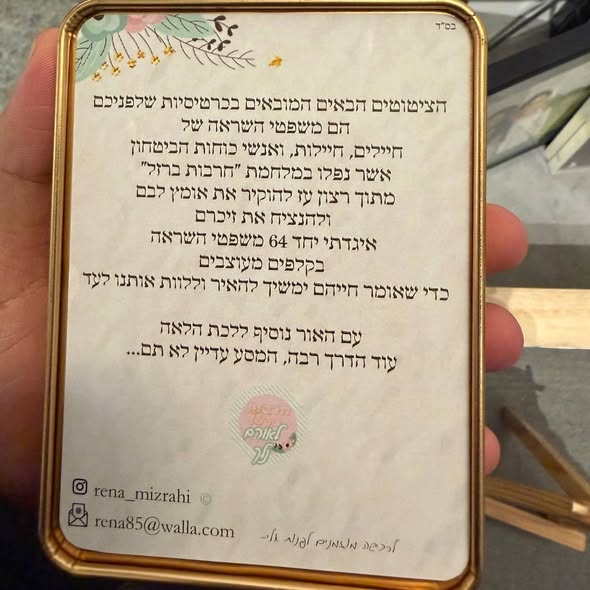 בס"ד
הציטוטים הבאים המובאים בכרטיסיות שלפניכם
הם משפטי השראה של
חיילים, חיילות, ואנשי כוחות הביטחון
אשר נפלו במלחמת "חרבות ברזל"
מתוך רצון עז להוקיר את אומץ לבם
ולהנציח את זיכרם
איגדתי יחד 64 משפטי השראה
בקלפים מעוצבים
כדי שאומר חייהם ימשיך להאיר וללוות אותנו לעד
עם האור נוסיף ללכת הלאה
עוד הדרך רבה, המסע עדיין לא תם...
לאורם
נלך
rena_mizrahi ©
rena85@walla.com
לרכישה מוזמנים לפנות אלי-